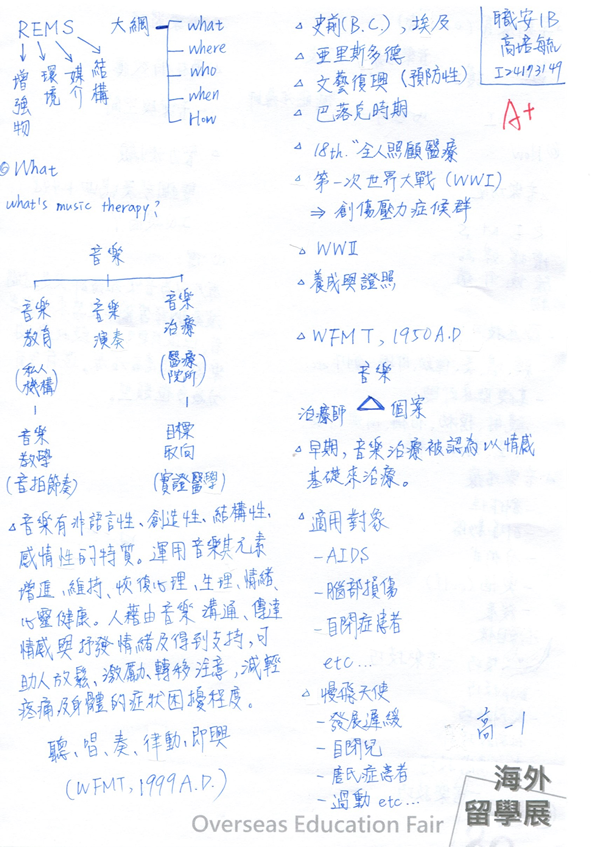 REMS
增強物
環境
媒介
結構
大綱
what
where
who
when
How
◎ What
what's music therapy?
音樂
音樂教育
(私人機構)
音樂教學
(音拍節奏)
音樂演奏
音樂治療
(醫療院所)
目標取向
(實證醫學)
△音樂有非語言性、創造性、結構性、
感情性的特質。運用音樂其元素
增進、維持、恢復心理、生理、情緒、
心靈健康。人藉由音樂溝通、傳達
情感與抒發情緒及得到支持,可
助人放鬆、激勵、轉移注意,減輕
疼痛及身體的症狀困擾程度。
聽、唱、奏、律動、即興
(WFMT, 1999 A.D.)
△ 史前(B.C.),埃及
△ 亞里斯多德
△ 文藝復興 (預防性)
△ 巴洛克時期
△ 18th. "全人照顧醫療
△ 第一次世界大戰 (WWI)
⇒ 創傷壓力症候群
△ WWII
△ 養成與證照
△ WFMT, 1950 A.D
音樂
治療師 △ 個案
△ 早期,音樂治療被認為以情感
基礎來治療。
△ 適用對象
- AIDS
- 腦部損傷
- 自閉症患者
etc...
△ 慢飛天使
- 發展遲緩
- 自閉兒
- 唐氏症患者
- 過動 etc...
職安1B
I24173149
A+
高一1
海外
留學展
Overseas Education Fair